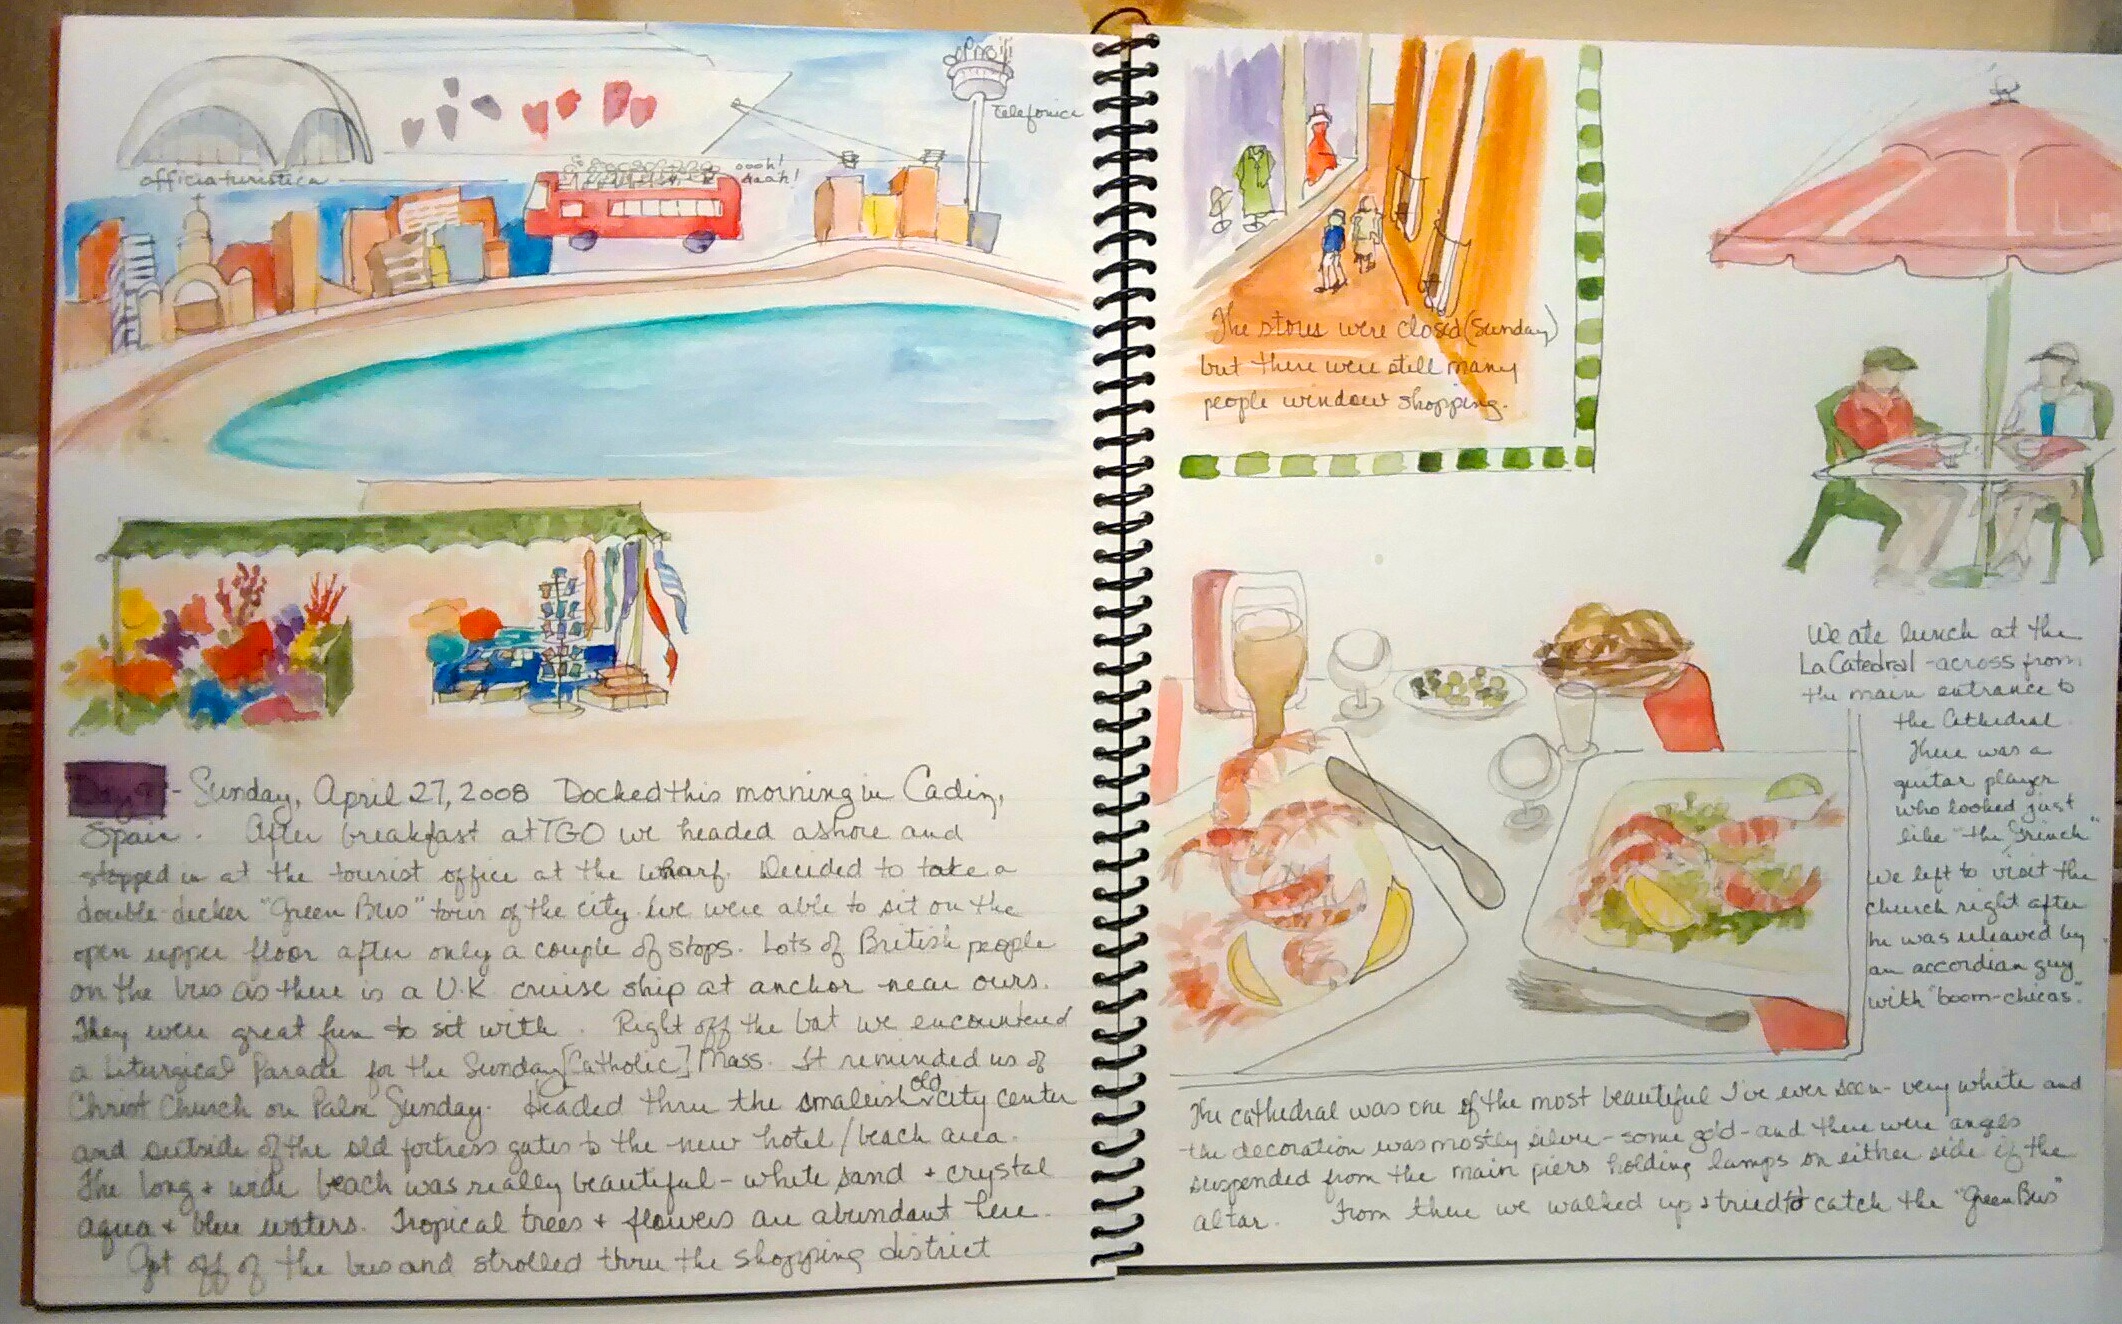 officiaturistica
Telefonica
oooh!
aaah!
Day - Sunday, April 27, 2008 Docked this morning in Cadiz,
Spain. After breakfast at TGO we headed ashore and
stopped in at the tourist office at the wharf. Decided to take a
double-decker "Green Bus" tour of the city. We were able to sit on the
open upper floor after only a couple of stops. Lots of British people
on the bus as there is a U.K. cruise ship at anchor near ours.
They were great fun to sit with. Right off the bat we encountered
a Liturgical Parade for the Sunday [Catholic] Mass. It reminded us of
Christ Church on Palm Sunday. Headed thru the smallish old city center
and outside of the old fortress gates to the new hotel/beach area.
The long + wide beach was really beautiful - white sand + crystal
aqua + blue waters. Tropical trees + flowers are abundant here.
Got off of the bus and strolled thru the shopping district
The stores were closed (Sunday)
but there were still many
people window shopping.
We ate lunch at the
La Catedral - across from
the main entrance to
the Cathedral.
There was a
guitar player
who looked just
like "the Grinch"
We left to visit the
church right after
he was releaved by
an accordian guy
with "boom-chicas".
The cathedral was one of the most beautiful I've ever seen - very white and
the decoration was mostly silver - some gold - and there were angels
suspended from the main piers holding lamps on either side of the
altar. From there we walked up + tried to catch the "Green Bus"